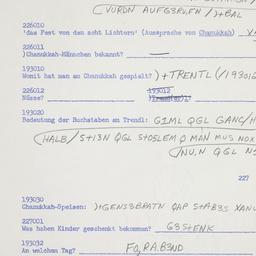 VURDN AUFG3RUFN / )+BAL
226010
'das Fest von den acht Lichtern' (Aussprache von Chanukkah)
226011
)Chanukkah-Männchen bekannt?
193010
Womit hat man an Chanukkah gespielt? )+TRENTL (/193012
226012 193012
Nüsse? )Trend(er)l?
193020
Bedeutung der Buchstaben am Trendl: G1ML QGL GANC/H
HALB/ S+I3N QGL S+OSLEM Q MAN MUS NOX
/NU,N QGL
227
193030
Chanukkah-Speisen: )+GENS3BRATN QAP S+AB3S XANU
227001
Was haben Kinder geschenkt bekommen? G3S+ENK
193032
An welchem Tag? FO,R A,B3ND